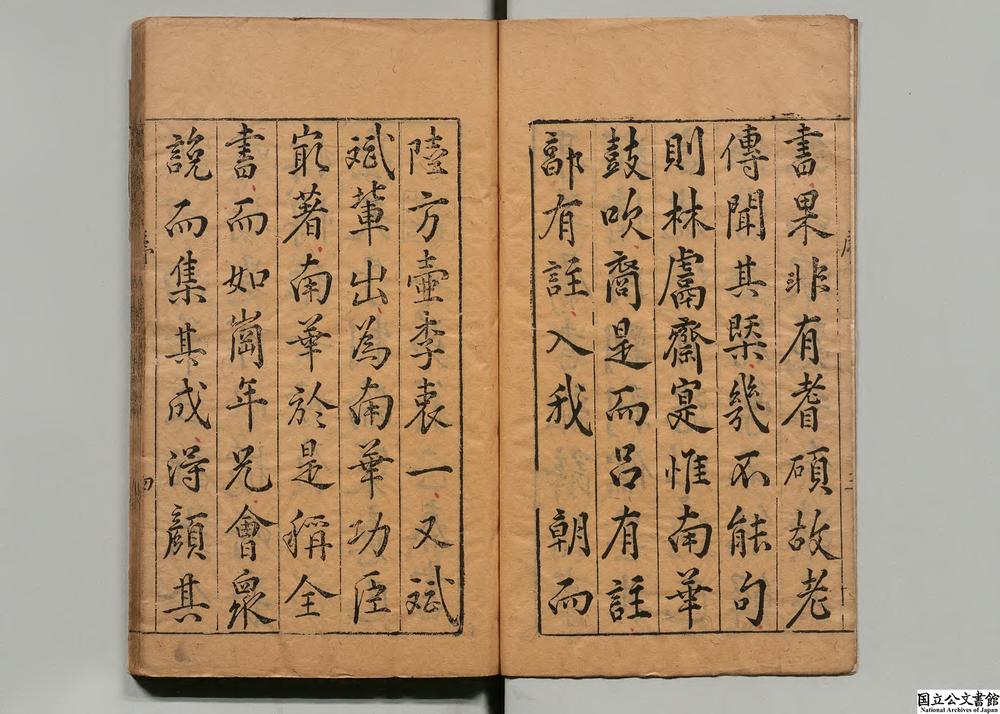 書果非有耆碩故老
傳聞其槩幾不能句
則林鬳齋寔惟南華
鼓吹裔是而呂有註
有註入我 朝而
陸方壺李衷一又斌
斌輩出為南華功臣
㝡著南華於是稱全
書而如崗年兄會衆
說而集其成得顏其
四
国立公文書館
National Archives of Japan